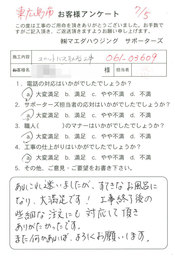 東広島市
7/5
お客様アンケート
この度は工事のご用命を頂きありがとうございました。お手数で
すがご記入頂き、ご返送頂きますようお願い申し上げます。
㈱マエダハウジング サポーターズ
施工内容 ユニットバス工事 061-03609
様 担当者
1. 電話の対応はいかがでしたでしょうか?
大変満足 ② 満足 ③ やや不満 ④ 不満
2. サポーターズ担当者の応対はいかがでしたでしょうか?
大変満足 ② 満足 ③ やや不満 ④ 不満
3. 職人( )のマナーはいかがでしたでしょうか?
大変満足 ② 満足 ③ やや不満 ④ 不満
4. 工事の品質はいかがでしたでしょうか?
大変満足 ② 満足 ③ やや不満 ④ 不満
5. その他、ご意見・ご要望をお聞かせください。
あれこれ迷いましたが、すてきなお風呂に
なり、大満足です! 工事終了後の
些細な注文にも対応して頂き
ありがたかったです。
また何かあれば、よろしくお願いします。